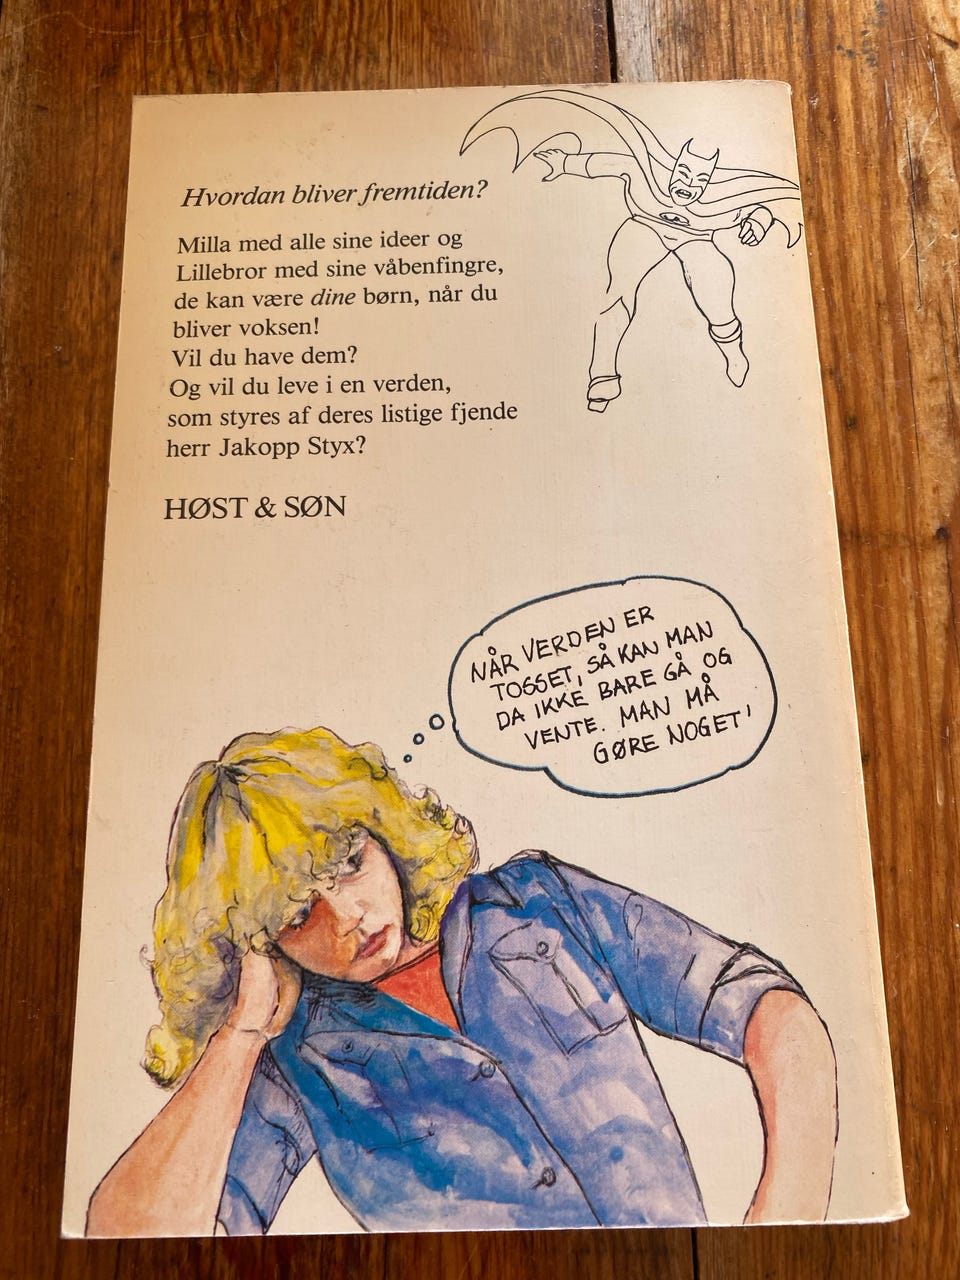 Hvordan bliver fremtiden?
Milla med alle sine ideer og
Lillebror med sine våbenfingre,
de kan være dine børn, når du
bliver voksen!
Vil du have dem?
Og vil du leve i en verden,
som styres af deres listige fjende
herr Jakopp Styx?
HØST & SØN
NÅR VERDEN ER
TOSSET, SÅ KAN MAN
DA IKKE BARE GÅ OG
VENTE. MAN MÅ
GØRE NOGET'